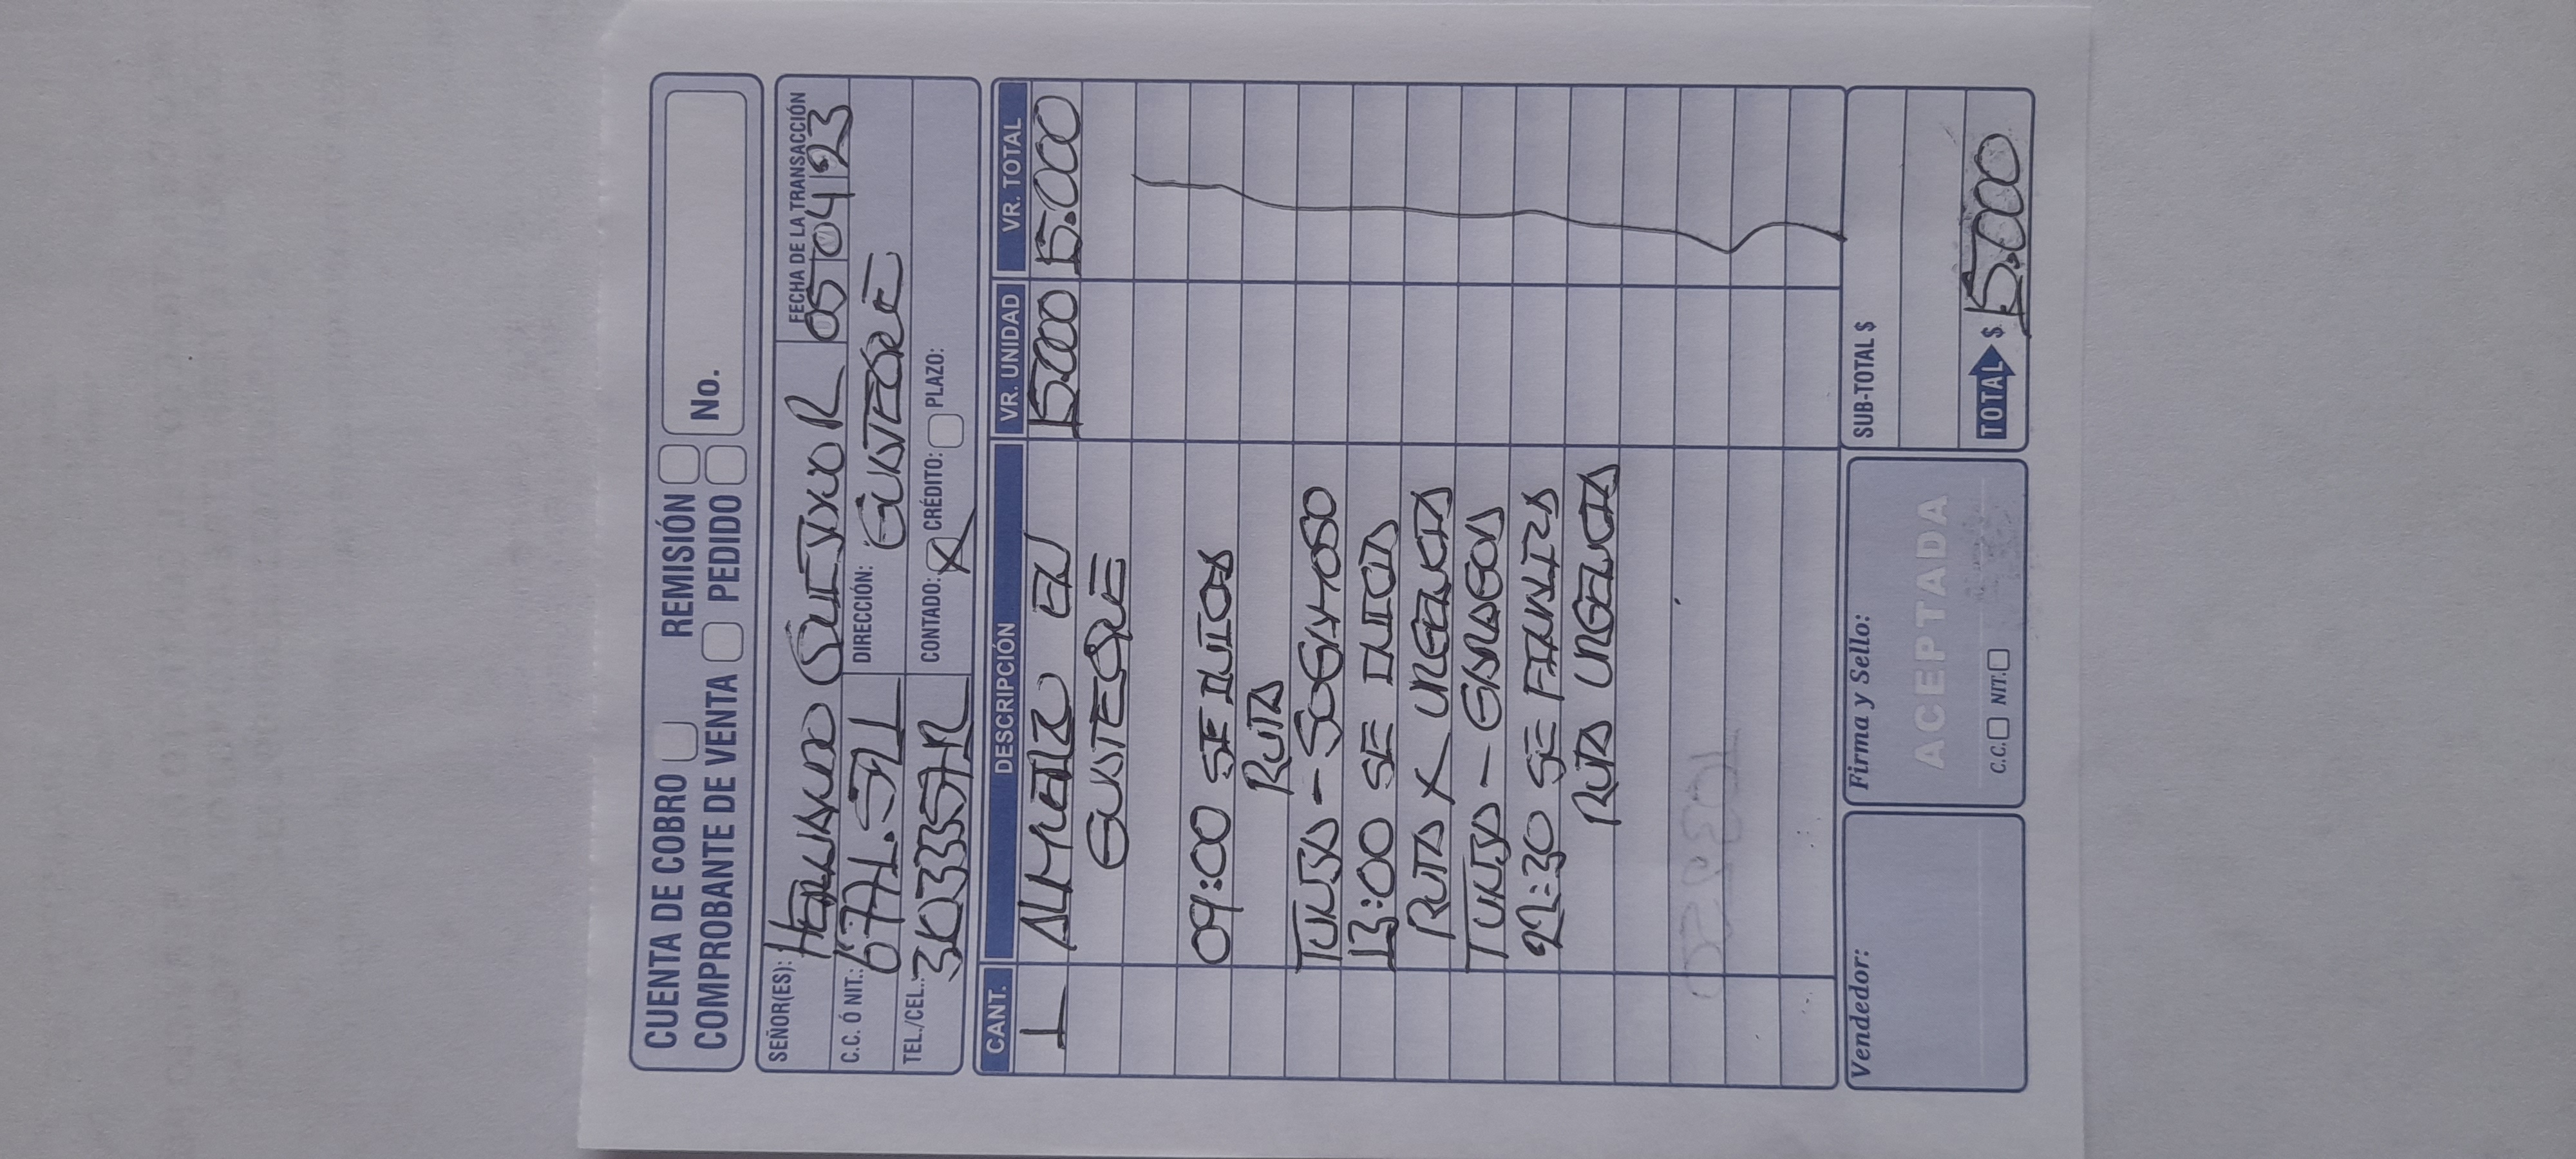 CUENTA DE COBRO REMISIÓN
COMPROBANTE DE VENTA PEDIDO No.
SEÑOR(ES): HERNANDO FECHA DE LA TRANSACCIÓN
05 04 23
C.C. Ó NIT.: DIRECCIÓN: GUATEQUE
TEL./CEL.: CONTADO: X CRÉDITO: PLAZO:
CANT. DESCRIPCIÓN VR. UNIDAD VR. TOTAL
1 ALMUERZO EN 15.000 15.000
GUATEQUE
09:00 SE INICIA
RUTA
TUNJA - SOGAMOSO
13:00 SE INICIA
RUTA X URGENCIA
TUNJA - GARAGOA
22:30 SE FINALIZA
RUTA URGENCIA
Vendedor: Firma y Sello: SUB-TOTAL $
ACEPTADA
C.C. NIT. TOTAL $ 15.000